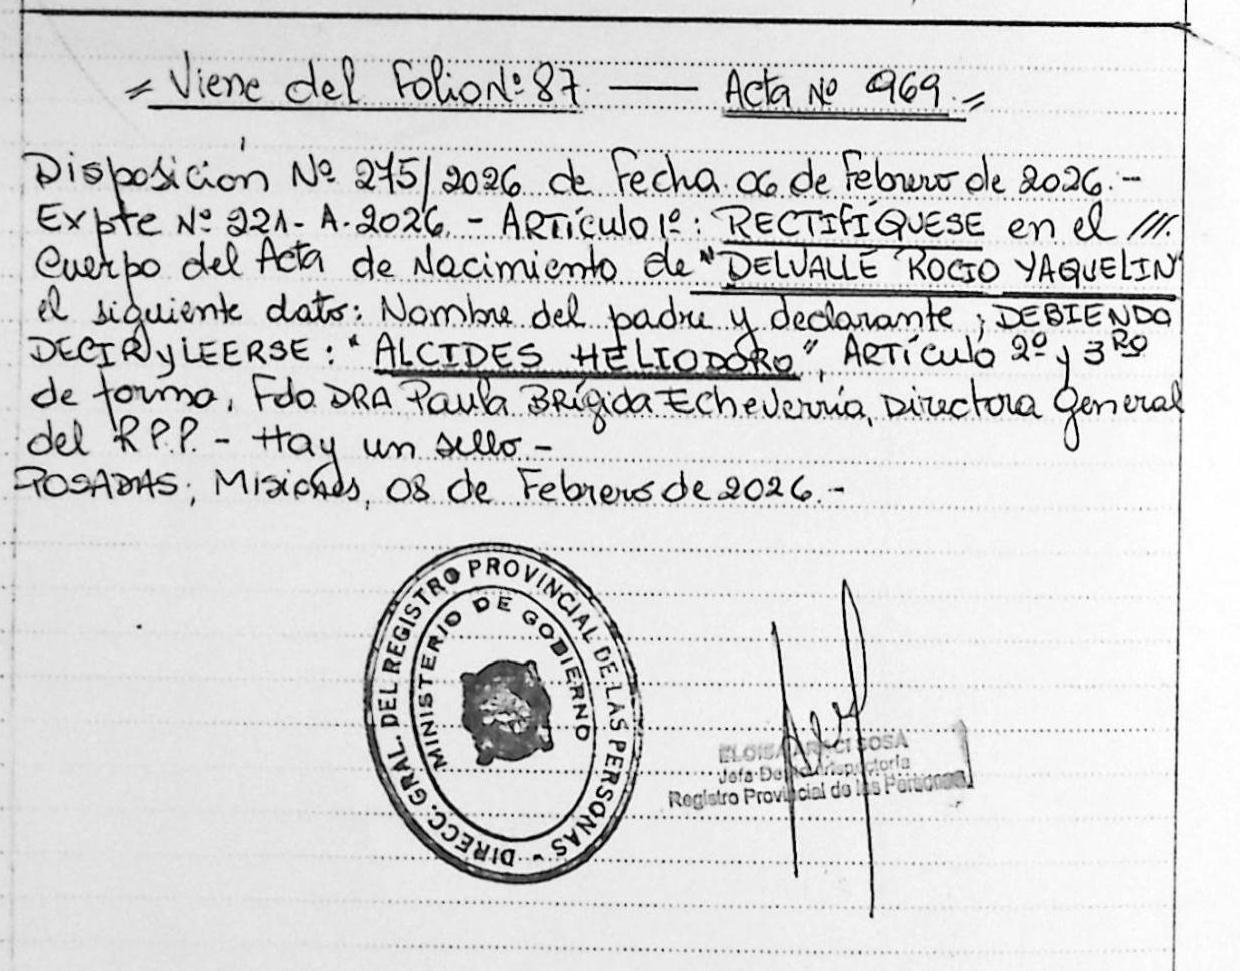 = Viene del Folio Nº 87. —— Acta Nº 969. =
Disposición Nº 275/2026 de Fecha 06 de Febrero de 2026.-
Expte Nº 221-A-2026.- ARTículo 1º: RECTIFÍQUESE en el ///.
Cuerpo del Acta de Nacimiento de "DELVALLE ROCIO YAQUELIN"
el siguiente dato: Nombre del padre y declarante; DEBIENDO
DECIR y LEERSE: "ALCIDES HELIODORO", ARTículo 2º y 3RO
de forma. Fdo DRA Paula BRígida Echeverría, Directora General
del R.P.P - Hay un sello -
POSADAS, Misiones, 08 de Febrero de 2026.-
DIRECC. GRAL. DEL REGISTRO PROVINCIAL DE LAS PERSONAS -
MINISTERIO DE GOBIERNO
ELOISA ARACI SOSA
Jefa De
Registro Provincial de las Personas